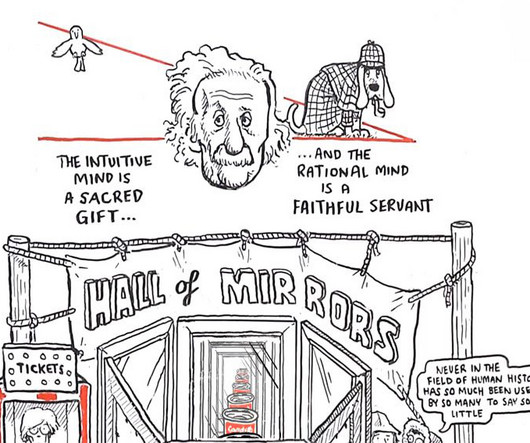 THE INTUITIVE
MIND IS
A SACRED
GIFT...
...AND THE
RATIONAL MIND
IS A
FAITHFUL SERVANT
HALL of MIRRORS
TICKETS
NEVER IN THE
FIELD OF HUMAN HISTO
HAS SO MUCH BEEN USE
BY SO MANY TO SAY SO
LITTLE